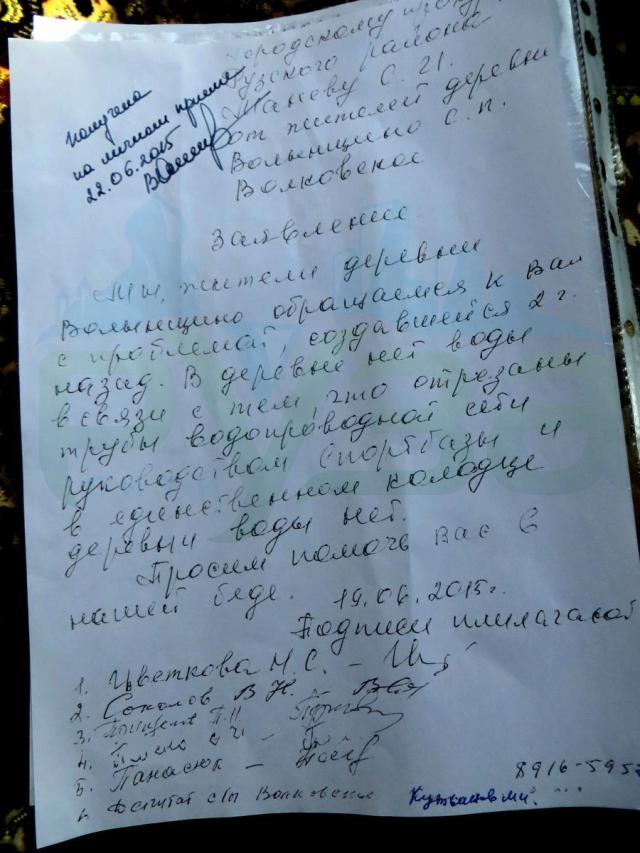 Городскому
Рузского района
от жителей деревни
Волынщино с.п.
Волковское
получено
на личном приеме
22.06.2015
Заявление.
Мы, жители деревни
Волынщино обращаемся к Вам
с проблемой создавшейся 2 г.
назад. В деревне нет воды
в связи с тем, что отрезаны
трубы водопроводной сети
руководством спортбазы и
в единственном колодце
деревни воды нет.
Просим помочь Вас в
нашей беде. 19.06.2015г.
Подписи
1. Цветкова Н.С. –
2. Соколов В Н
3.
4.
5. Панасюк –
6. Депутат с/п Волковское
8916-595
РУЗА